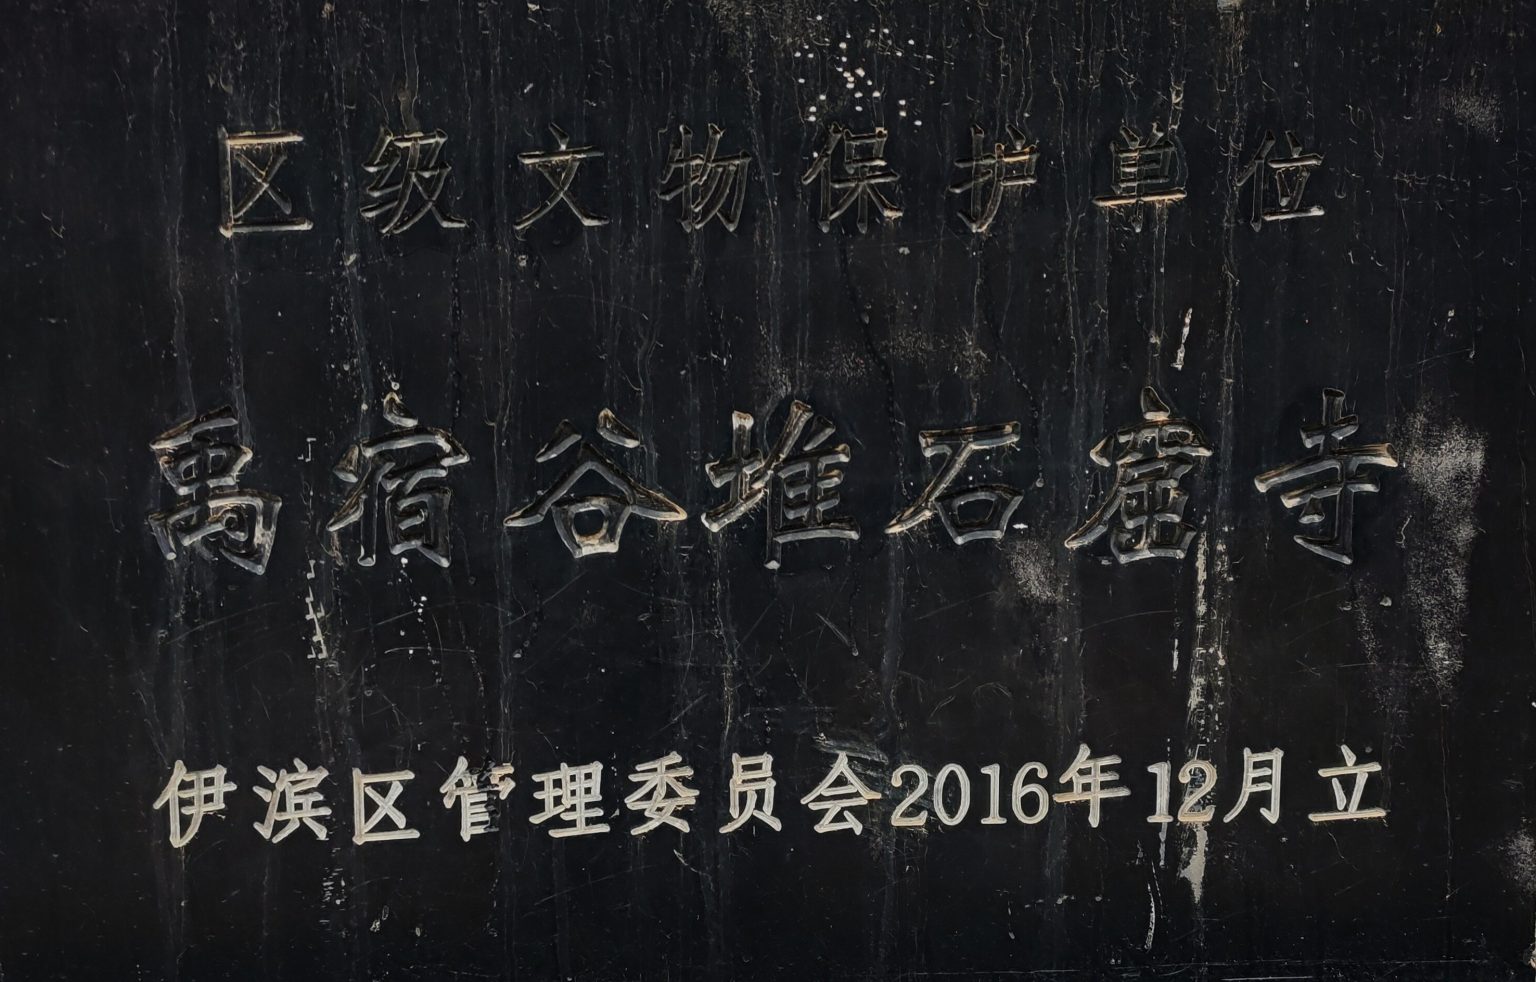 区级文物保护单位
禹宿谷堆石窟寺
伊滨区管理委员会2016年12月立